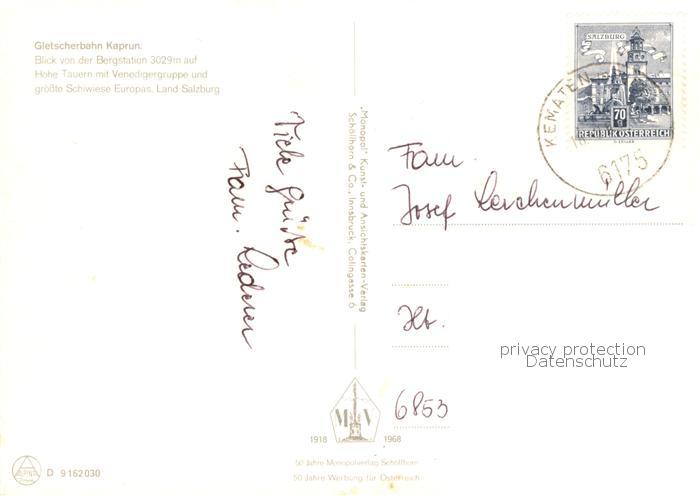 Gletscherbahn Kaprun.
Blick von der Bergstation 3029 m auf
Hohe Tauern mit Venedigergruppe und
größte Schiwiese Europas, Land Salzburg
Viele Grüße
Fam. Lederer
„Monopol" Kunst- und Ansichtskarten-Verlag
Schöllhorn & Co., Innsbruck, Colingasse 6
SALZBURG
70 g
REPUBLIK ÖSTERREICH
KEMATEN
6175
Fam.
Josef Lerchenmüller
Ht.
privacy protection
Datenschutz
6853
M V
1918 1968
50 Jahre Monopolverlag Schöllhorn
50 Jahre Werbung für Österreich
D 9162030